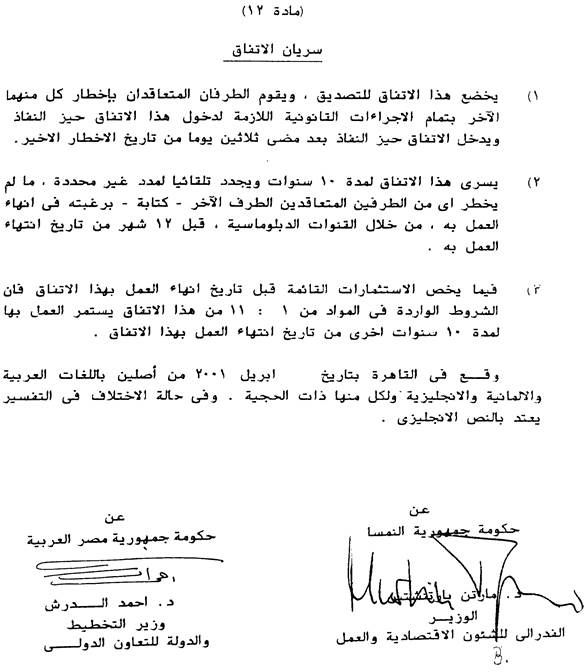 (مادة ١٢)
سريان الاتفاق
١) يخضع هذا الاتفاق للتصديق ، ويقوم الطرفان المتعاقدان بإخطار كل منهما
الآخر بتمام الاجراءات القانونية اللازمة لدخول هذا الاتفاق حيز النفاذ
ويدخل الاتفاق حيز النفاذ بعد مضى ثلاثين يوما من تاريخ الاخطار الاخير.
٢) يسرى هذا الاتفاق لمدة ١٠ سنوات ويجدد تلقائيا لمدد غير محددة ، ما لم
يخطر اى من الطرفين المتعاقدين الطرف الآخر - كتابة - برغبته فى انهاء
العمل به ، من خلال القنوات الدبلوماسية ، قبل ١٢ شهر من تاريخ انتهاء
العمل به .
٣) فيما يخص الاستثمارات القائمة قبل تاريخ انهاء العمل بهذا الاتفاق فان
الشروط الواردة فى المواد من ١ : ١١ من هذا الاتفاق يستمر العمل بها
لمدة ١٠ سنوات اخرى من تاريخ انتهاء العمل بهذا الاتفاق .
وقـع فى القاهرة بتاريخ ابريل ٢٠٠١ من أصلين باللغات العربية
والالمانية والانجليزية ولكل منها ذات الحجية . وفى حالة الاختلاف فى التفسير
يعتد بالنص الانجليزى .
عن
حكومة جمهورية النمسا
د. مارتن
الوزيـر
الفدرالى للشئون الاقتصادية والعمل
عن
حكومة جمهورية مصر العربية
د. احمد الـــدرش
وزير التخطيط
والدولة للتعاون الدولـــى